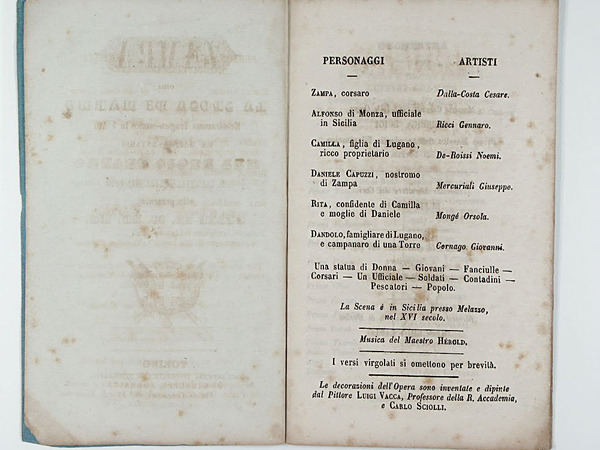 PERSONAGGI ARTISTI
ZAMPA, corsaro Dalla-Costa Cesare.
ALFONSO di Monza, ufficiale
in Sicilia Ricci Gennaro.
CAMILLA, figlia di Lugano,
ricco proprietario De-Roissi Noemi.
DANIELE CAPUZZI, nostromo
di Zampa Mercuriali Giuseppe.
RITA, confidente di Camilla
e moglie di Daniele Mongé Orsola.
DANDOLO, famigliare di Lugano,
e campanaro di una Torre Cornago Giovanni.
Una statua di Donna — Giovani — Fanciulle —
Corsari — Un Ufficiale — Soldati — Contadini —
Pescatori — Popolo.
La Scena è in Sicilia presso Melasso,
nel XVI secolo.
Musica del Maestro HÉROLD.
I versi virgolati si omettono per brevità.
Le decorazioni dell'Opera sono inventate e dipinte
dal Pittore LUIGI VACCA, Professore della R. Accademia,
e CARLO SCIOLLI.